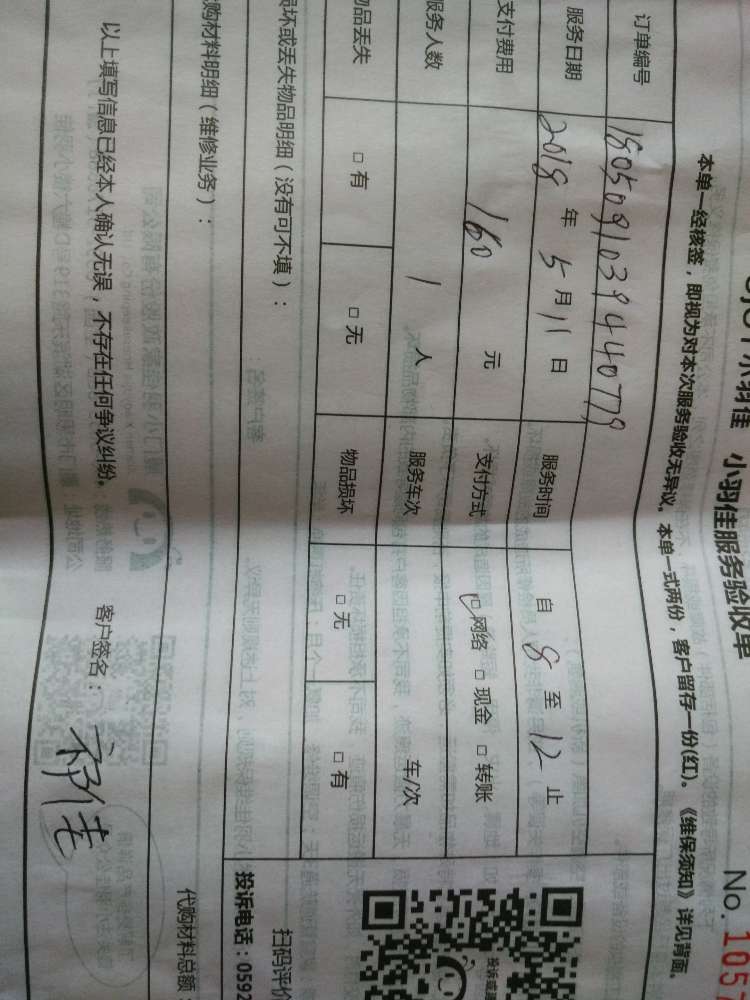 小羽佳 小羽佳服务验收单 No. 1057
本单一经核签，即视为对本次服务验收无异议。本单一式两份，客户留存一份(红)。《维保须知》详见背面。
订单编号 1805091039440779
服务日期 2018 年 5 月 11 日 服务时间 自 8 至 12 止
支付费用 160 元 支付方式 ☑网络 □现金 □转账
服务人数 1 人 服务车次 车/次
物品丢失 □有 □无 物品损坏 □无 □有
损坏或丢失物品明细（没有可不填）：
扫码评价
投诉电话：0592
购材料明细（维修业务）：
代购材料总额：
以上填写信息已经本人确认无误，不存在任何争议纠纷。 客户签名：